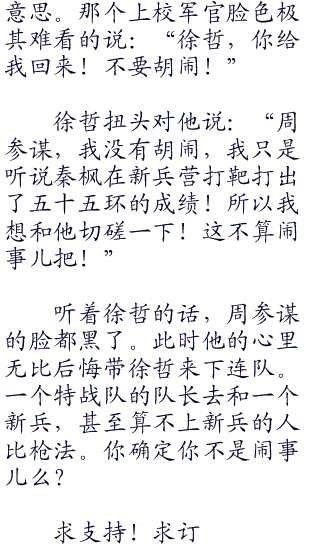 意思。那个上校军官脸色极
其难看的说：“徐哲，你给
我回来！不要胡闹！”
徐哲扭头对他说：“周
参谋，我没有胡闹，我只是
听说秦枫在新兵营打靶打出
了五十五环的成绩！所以我
想和他切磋一下！这不算闹
事儿把！”
听着徐哲的话，周参谋
的脸都黑了。此时他的心里
无比后悔带徐哲来下连队。
一个特战队的队长去和一个
新兵，甚至算不上新兵的人
比枪法。你确定你不是闹事
儿么？
求支持！求订